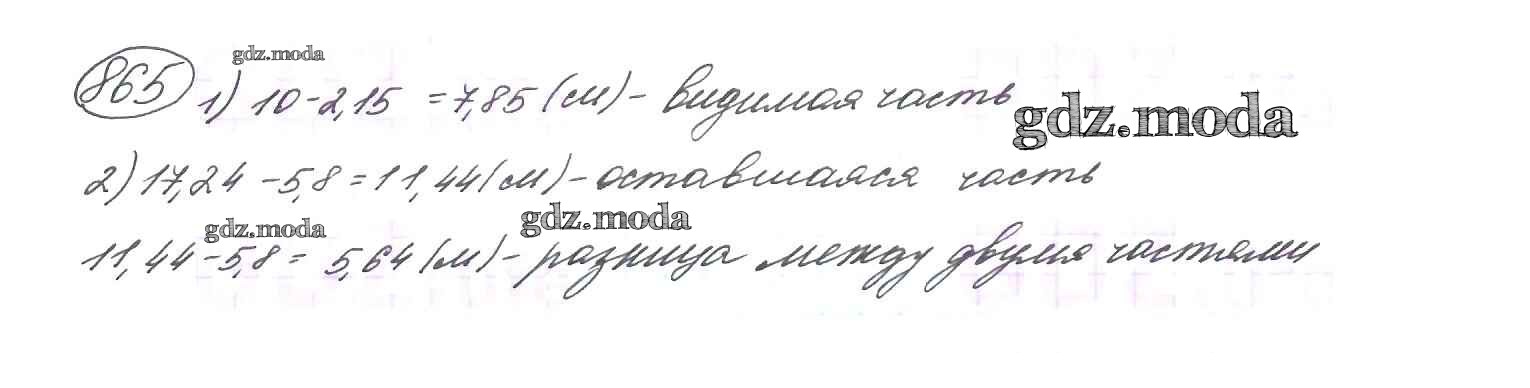 gdz.moda
865 1) 10-2,15 = 7,85 (м) - видимая часть
gdz.moda
2) 17,24 - 5,8 = 11,44 (м) - оставшаяся часть
gdz.moda gdz.moda
11,44 - 5,8 = 5,64 (м) - разница между двумя частями